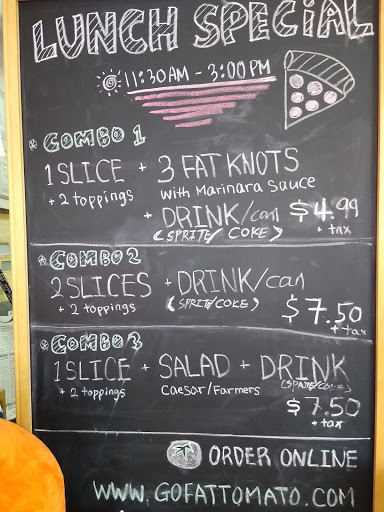 LUNCH SPECIAL
11:30AM - 3:00PM
* COMBO 1
1 SLICE + 3 FAT KNOTS
+ 2 toppings with Marinara sauce
+ DRINK/can $4.99
(SPRITE/ COKE) + tax
* COMBO 2
2 SLICES + DRINK/can
+ 2 toppings (SPRITE/COKE) $7.50
+ tax
* COMBO 3
1 SLICE + SALAD + DRINK
+ 2 toppings Caesar/Farmers (SPRITE/COKE)
$7.50
+ tax
ORDER ONLINE
WWW.GOFATTOMATO.COM